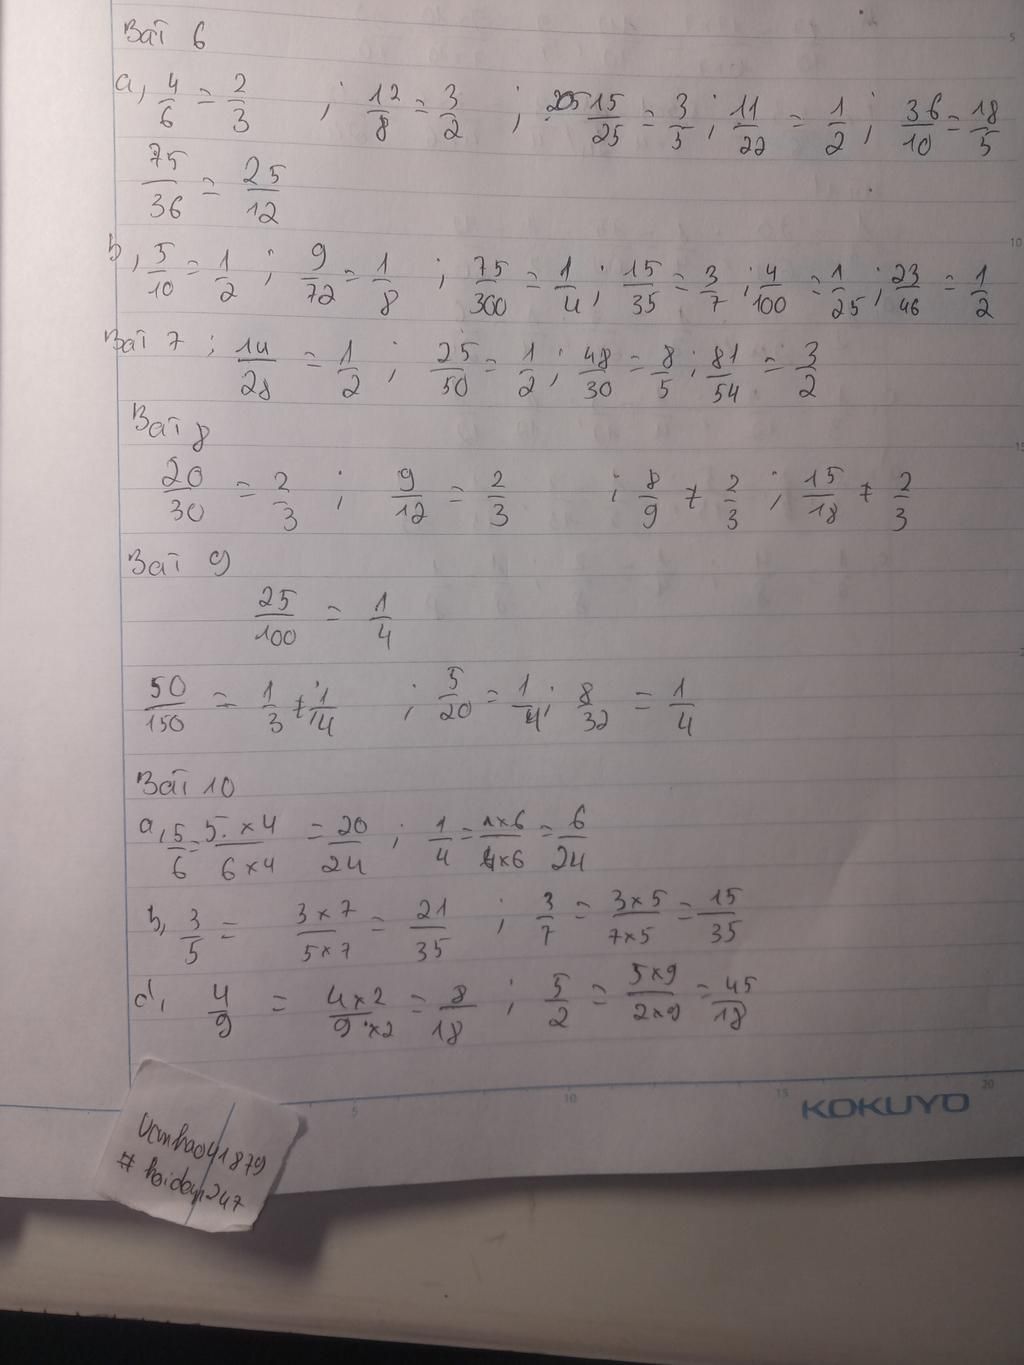 Bài 6
a, 4/6 = 2/3 ; 12/8 = 3/2 ; 15/25 = 3/5 ; 11/22 = 1/2 ; 36/10 = 18/5
75/36 = 25/12
b, 5/10 = 1/2 ; 9/72 = 1/8 ; 75/300 = 1/4 ; 15/35 = 3/7 ; 4/100 = 1/25 ; 23/46 = 1/2
Bài 7 ; 14/28 = 1/2 ; 25/50 = 1/2 ; 48/30 = 8/5 ; 81/54 = 3/2
Bài 8
20/30 = 2/3 ; 9/12 = 2/3 ; 8/9 ≠ 2/3 ; 15/18 ≠ 2/3
Bài 9
25/100 = 1/4
50/150 = 1/3 ≠ 1/4 ; 5/20 = 1/4 ; 8/32 = 1/4
Bài 10
a, 5/6 = 5 × 4/6 × 4 = 20/24 ; 1/4 = 1 × 6/4 × 6 = 6/24
b, 3/5 = 3 × 7/5 × 7 = 21/35 ; 3/7 = 3 × 5/7 × 5 = 15/35
d, 4/9 = 4 × 2/9 × 2 = 8/18 ; 5/2 = 5 × 9/2 × 9 = 45/18
5 10 15 20
KOKUYO
# hoidap247